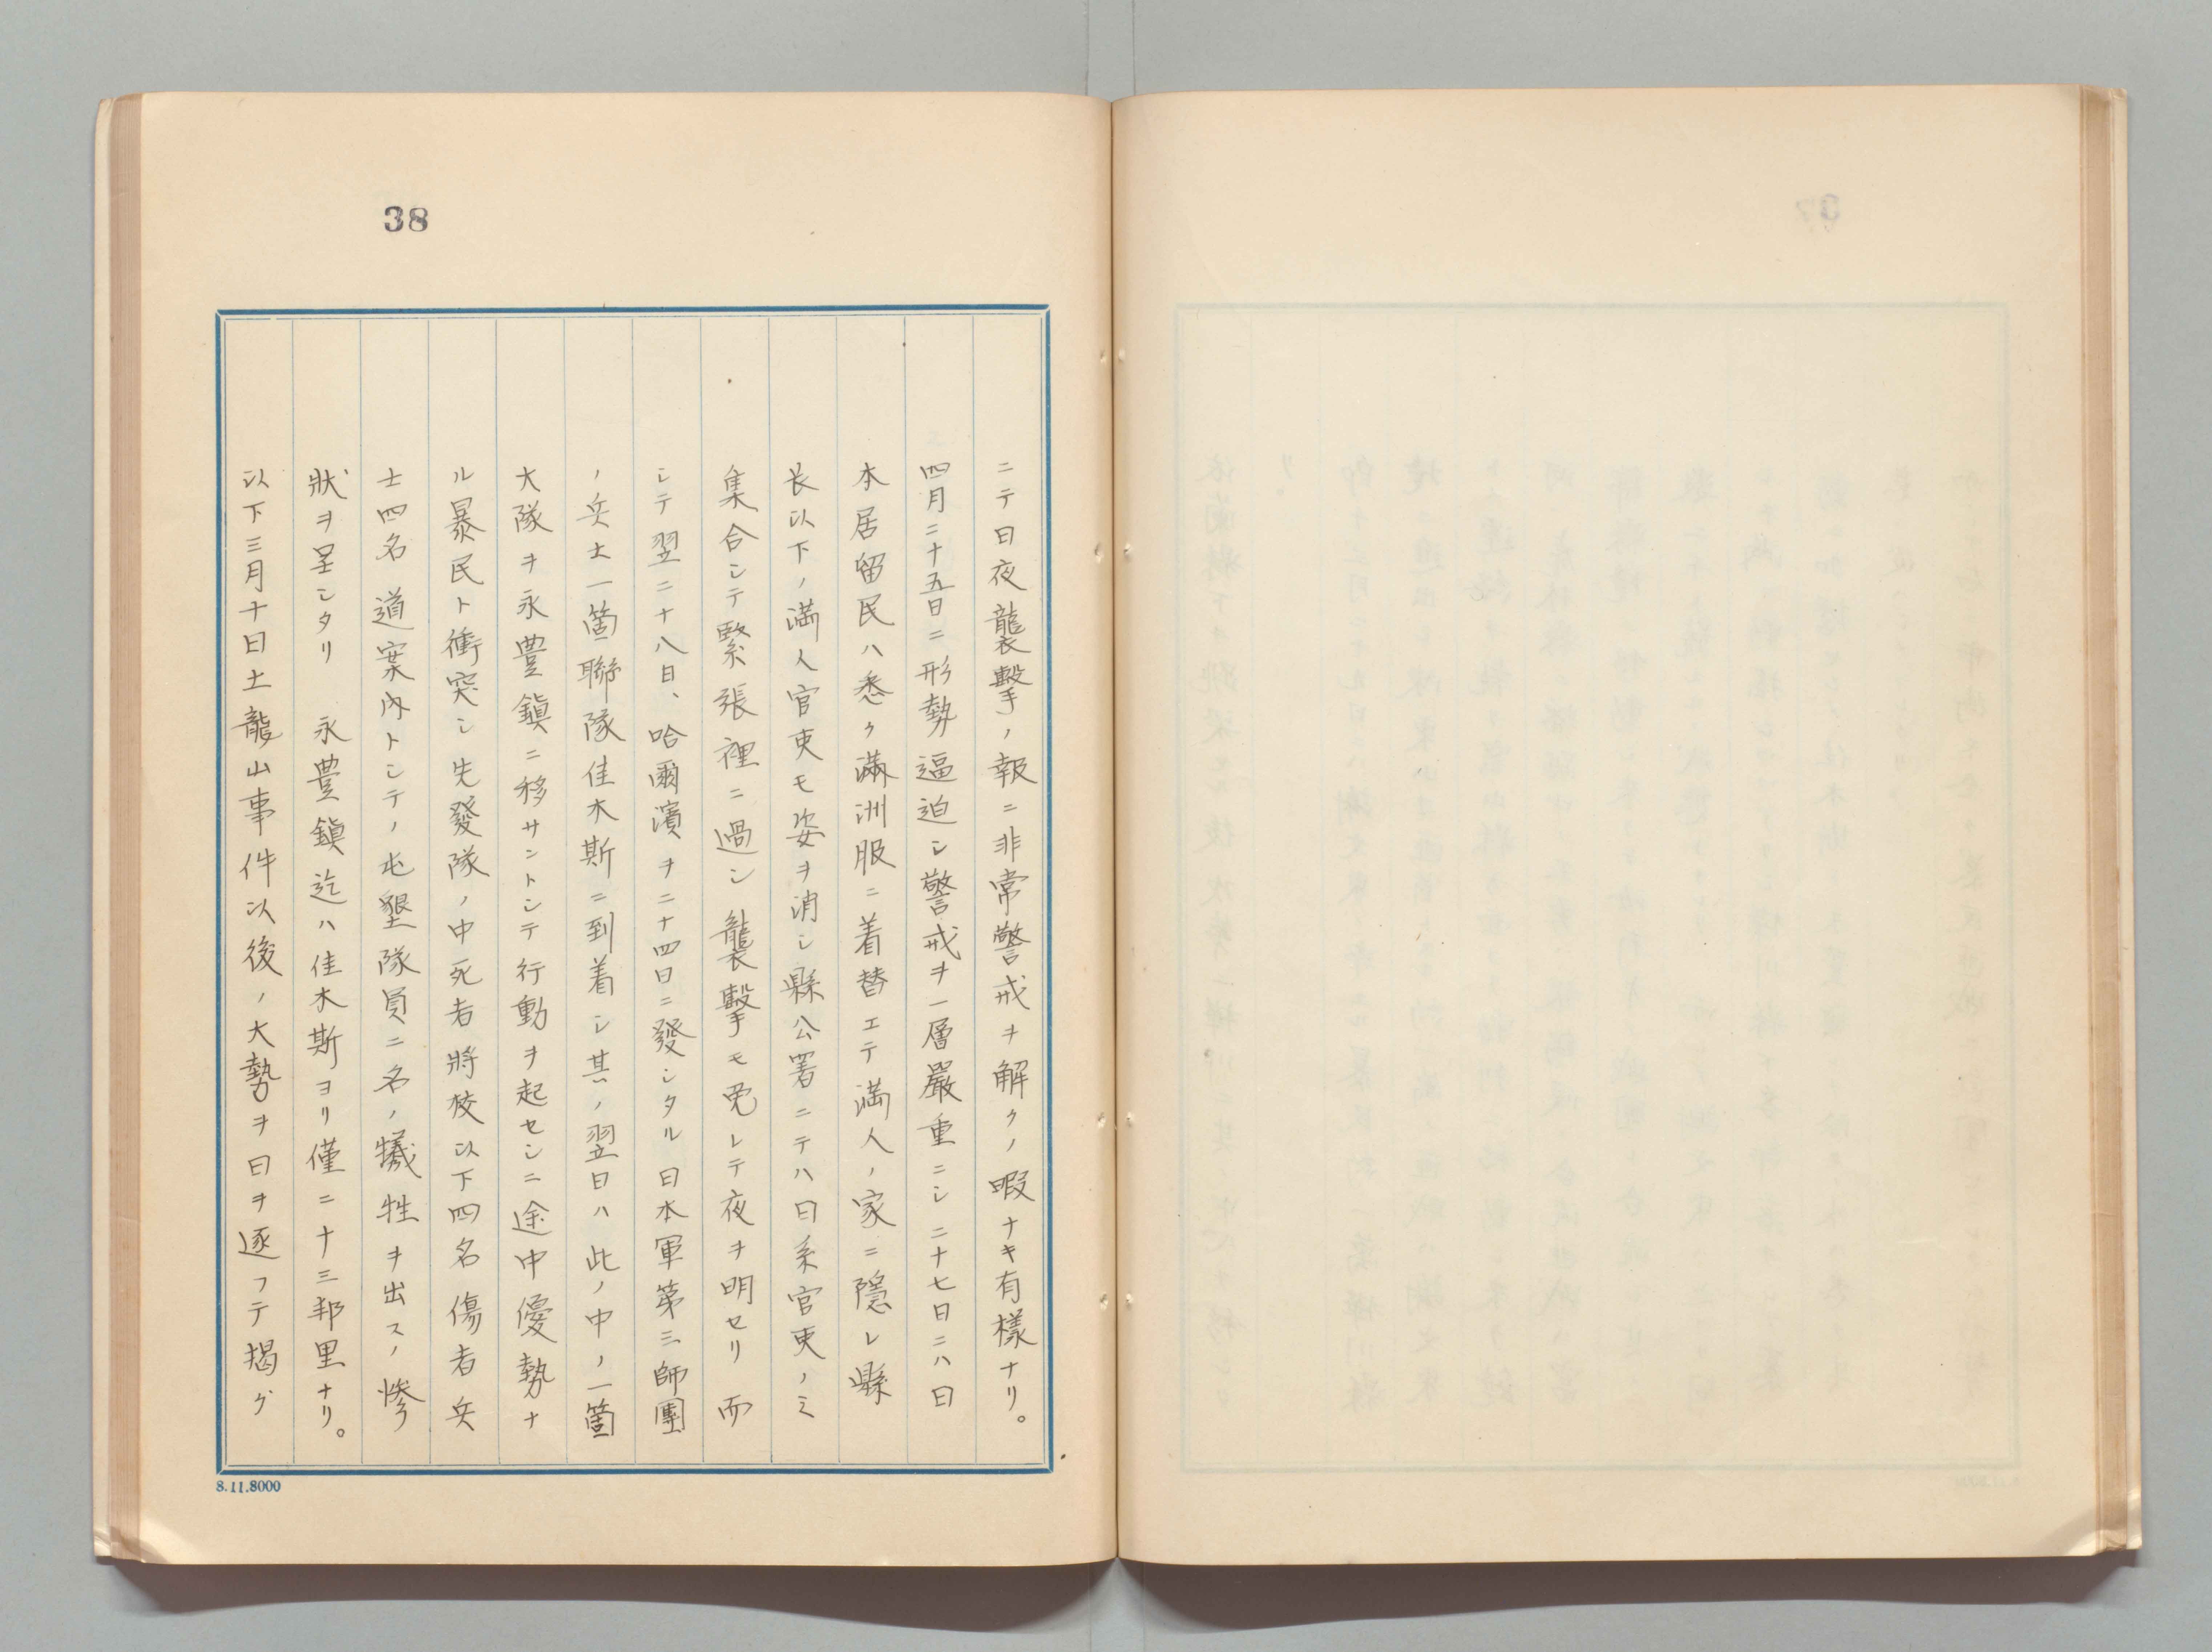 38
ニテ日夜襲擊ノ報ニ非常警戒ヲ解クノ暇ナキ有樣ナリ。
四月二十五日ニ形勢逼迫シ警戒ヲ一層嚴重ニシ二十七日ニハ日
本居留民ハ悉ク滿洲服ニ着替エテ満人ノ家ニ隱レ縣
長以下ノ満人官吏モ姿ヲ消シ縣公署ニテハ日系官吏ノミ
集合シテ緊張裡ニ過シ襲擊モ免レテ夜ヲ明セリ而
シテ翌二十八日、哈爾濱ヲ二十四日ニ發シタル日本軍第三師團
ノ兵士一箇聯隊佳木斯ニ到着シ其ノ翌日ハ此ノ中ノ一箇
大隊ヲ永豊鎭ニ移サントシテ行動ヲ起セシニ途中優勢ナ
ル暴民ト衝突シ先發隊ノ中死者將校以下四名傷者兵
士四名道案內トシテノ屯墾隊員二名ノ犠牲ヲ出スノ慘
狀ヲ呈シタリ 永豊鎭迄ハ佳木斯ヨリ僅ニ十三邦里ナリ。
以下三月十日土龍山事件以後ノ大勢ヲ日ヲ逐フテ揭グ
8.11.8000